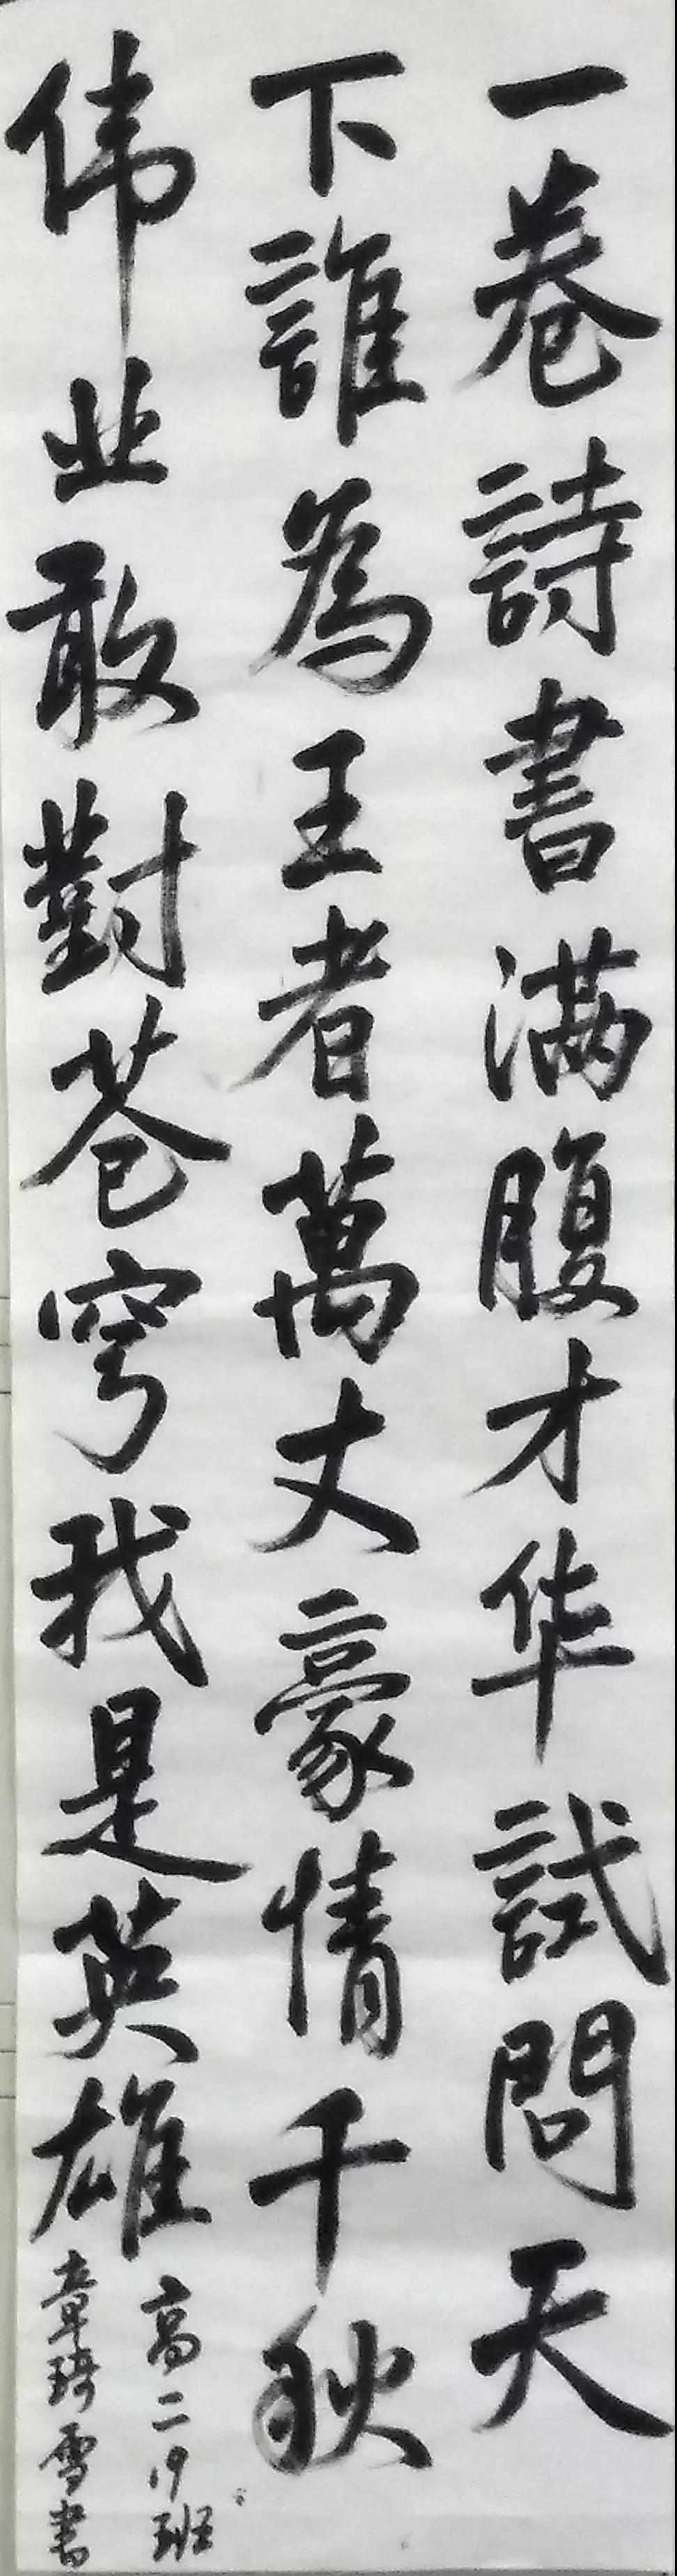 一卷詩書满腹才华試問天
下誰為王者萬丈豪情千秋
伟业敢對苍穹我是英雄
高二19班
章琦雪書